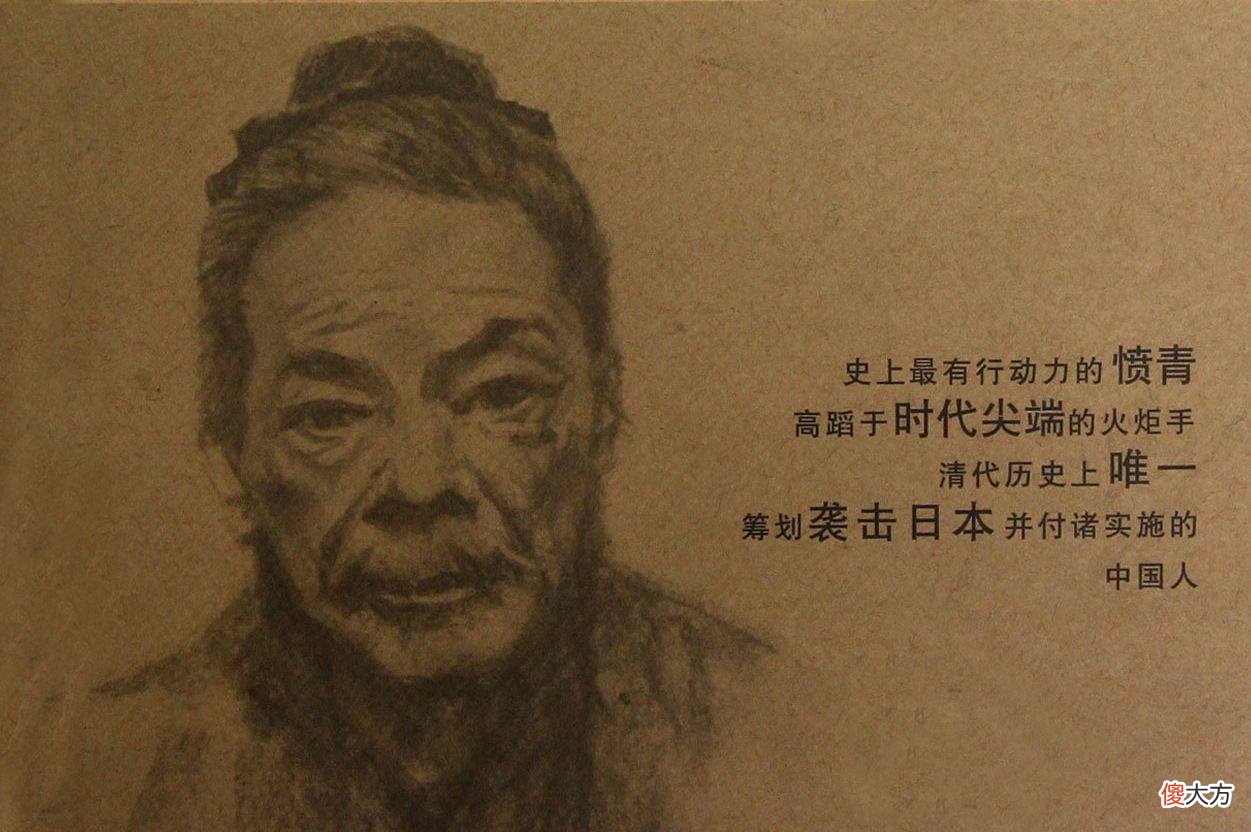 史上最有行动力的愤青
高蹈于时代尖端的火炬手
清代历史上唯一
筹划袭击日本并付诸实施的
中国人
傻大方